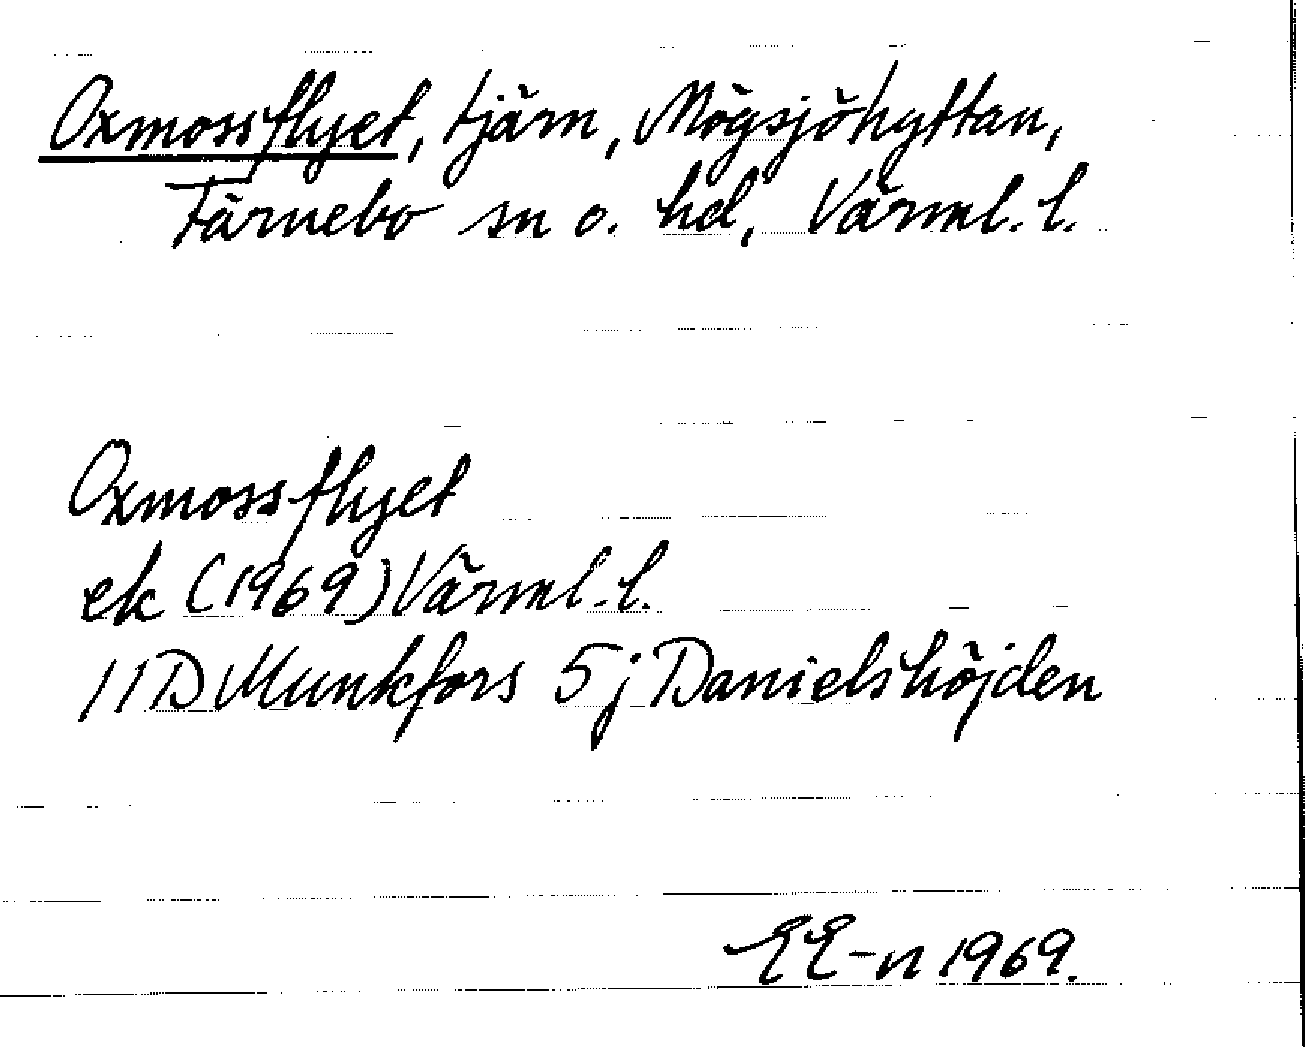 Oxmossflyet, tjärn, Mögsjöhyttan,
Färnebo sn o. hd, Värml. l.
Oxmossflyet
ek (1969) Värml. l.
11D Munkfors 5j Danielshöjden
EE-n 1969.